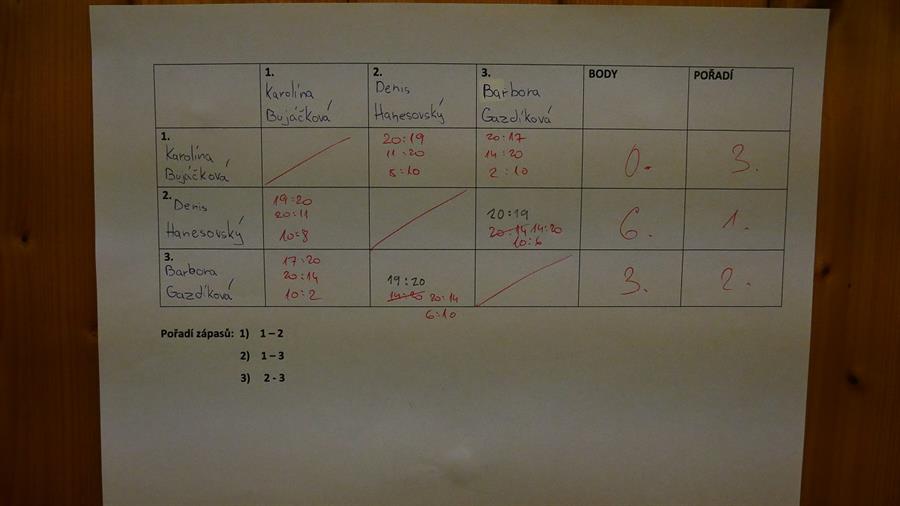 1.
Karolína
Bujáčková
2.
Denis
Hanesovský
3.
Barbora
Gazdíková
BODY
POŘADÍ
1.
Karolína
Bujáčková
20:19
11:20
8:10
20:17
14:20
2:10
0.
3.
2.
Denis
Hanesovský
19:20
20:11
10:8
20:19
20:14 14:20
10:6
6.
1.
3.
Barbora
Gazdíková
17:20
20:14
10:2
19:20
14:20 20:14
6:10
3.
2.
Pořadí zápasů: 1) 1 – 2
2) 1 – 3
3) 2 - 3